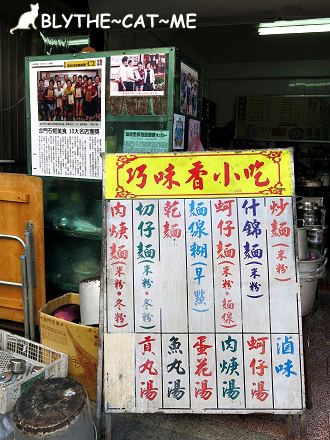 BLYTHE~CAT~ME
金門石蚵美食 10大名店獲獎
巧味香小吃
炒麵(米粉)
什錦麵(米粉)
蚵仔麵(米粉·麵線)
麵線糊(早點)
乾麵
切仔麵(米粉·冬粉)
肉焿麵(米粉·冬粉)
滷味
蚵仔湯
肉焿湯
蛋花湯
魚丸湯
貢丸湯